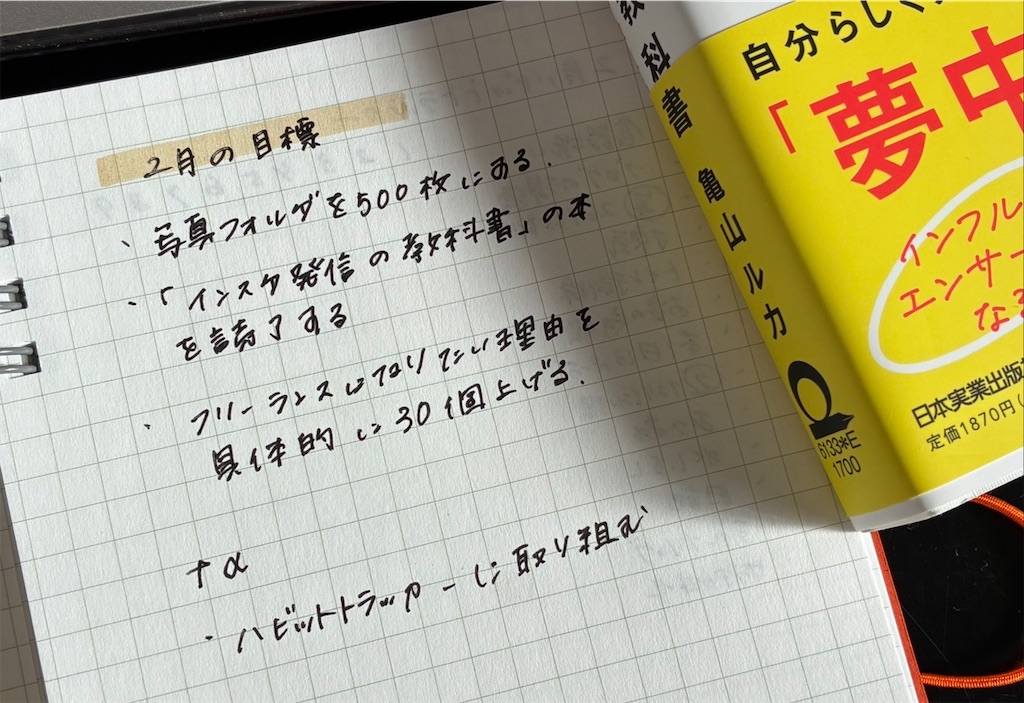 2月の目標
・写真フォルダを500枚にする.
・「インスタ発信の教科書」の本
を読了する
・フリーランスになりたい理由を
具体的に30個上げる.
+α
・ハビットトラッカーに取り組む
教科書 亀山ルカ
6133*E
1700
自分らしく
「夢中
インフル
エンサー
なる
日本実業出版
定価1870円(